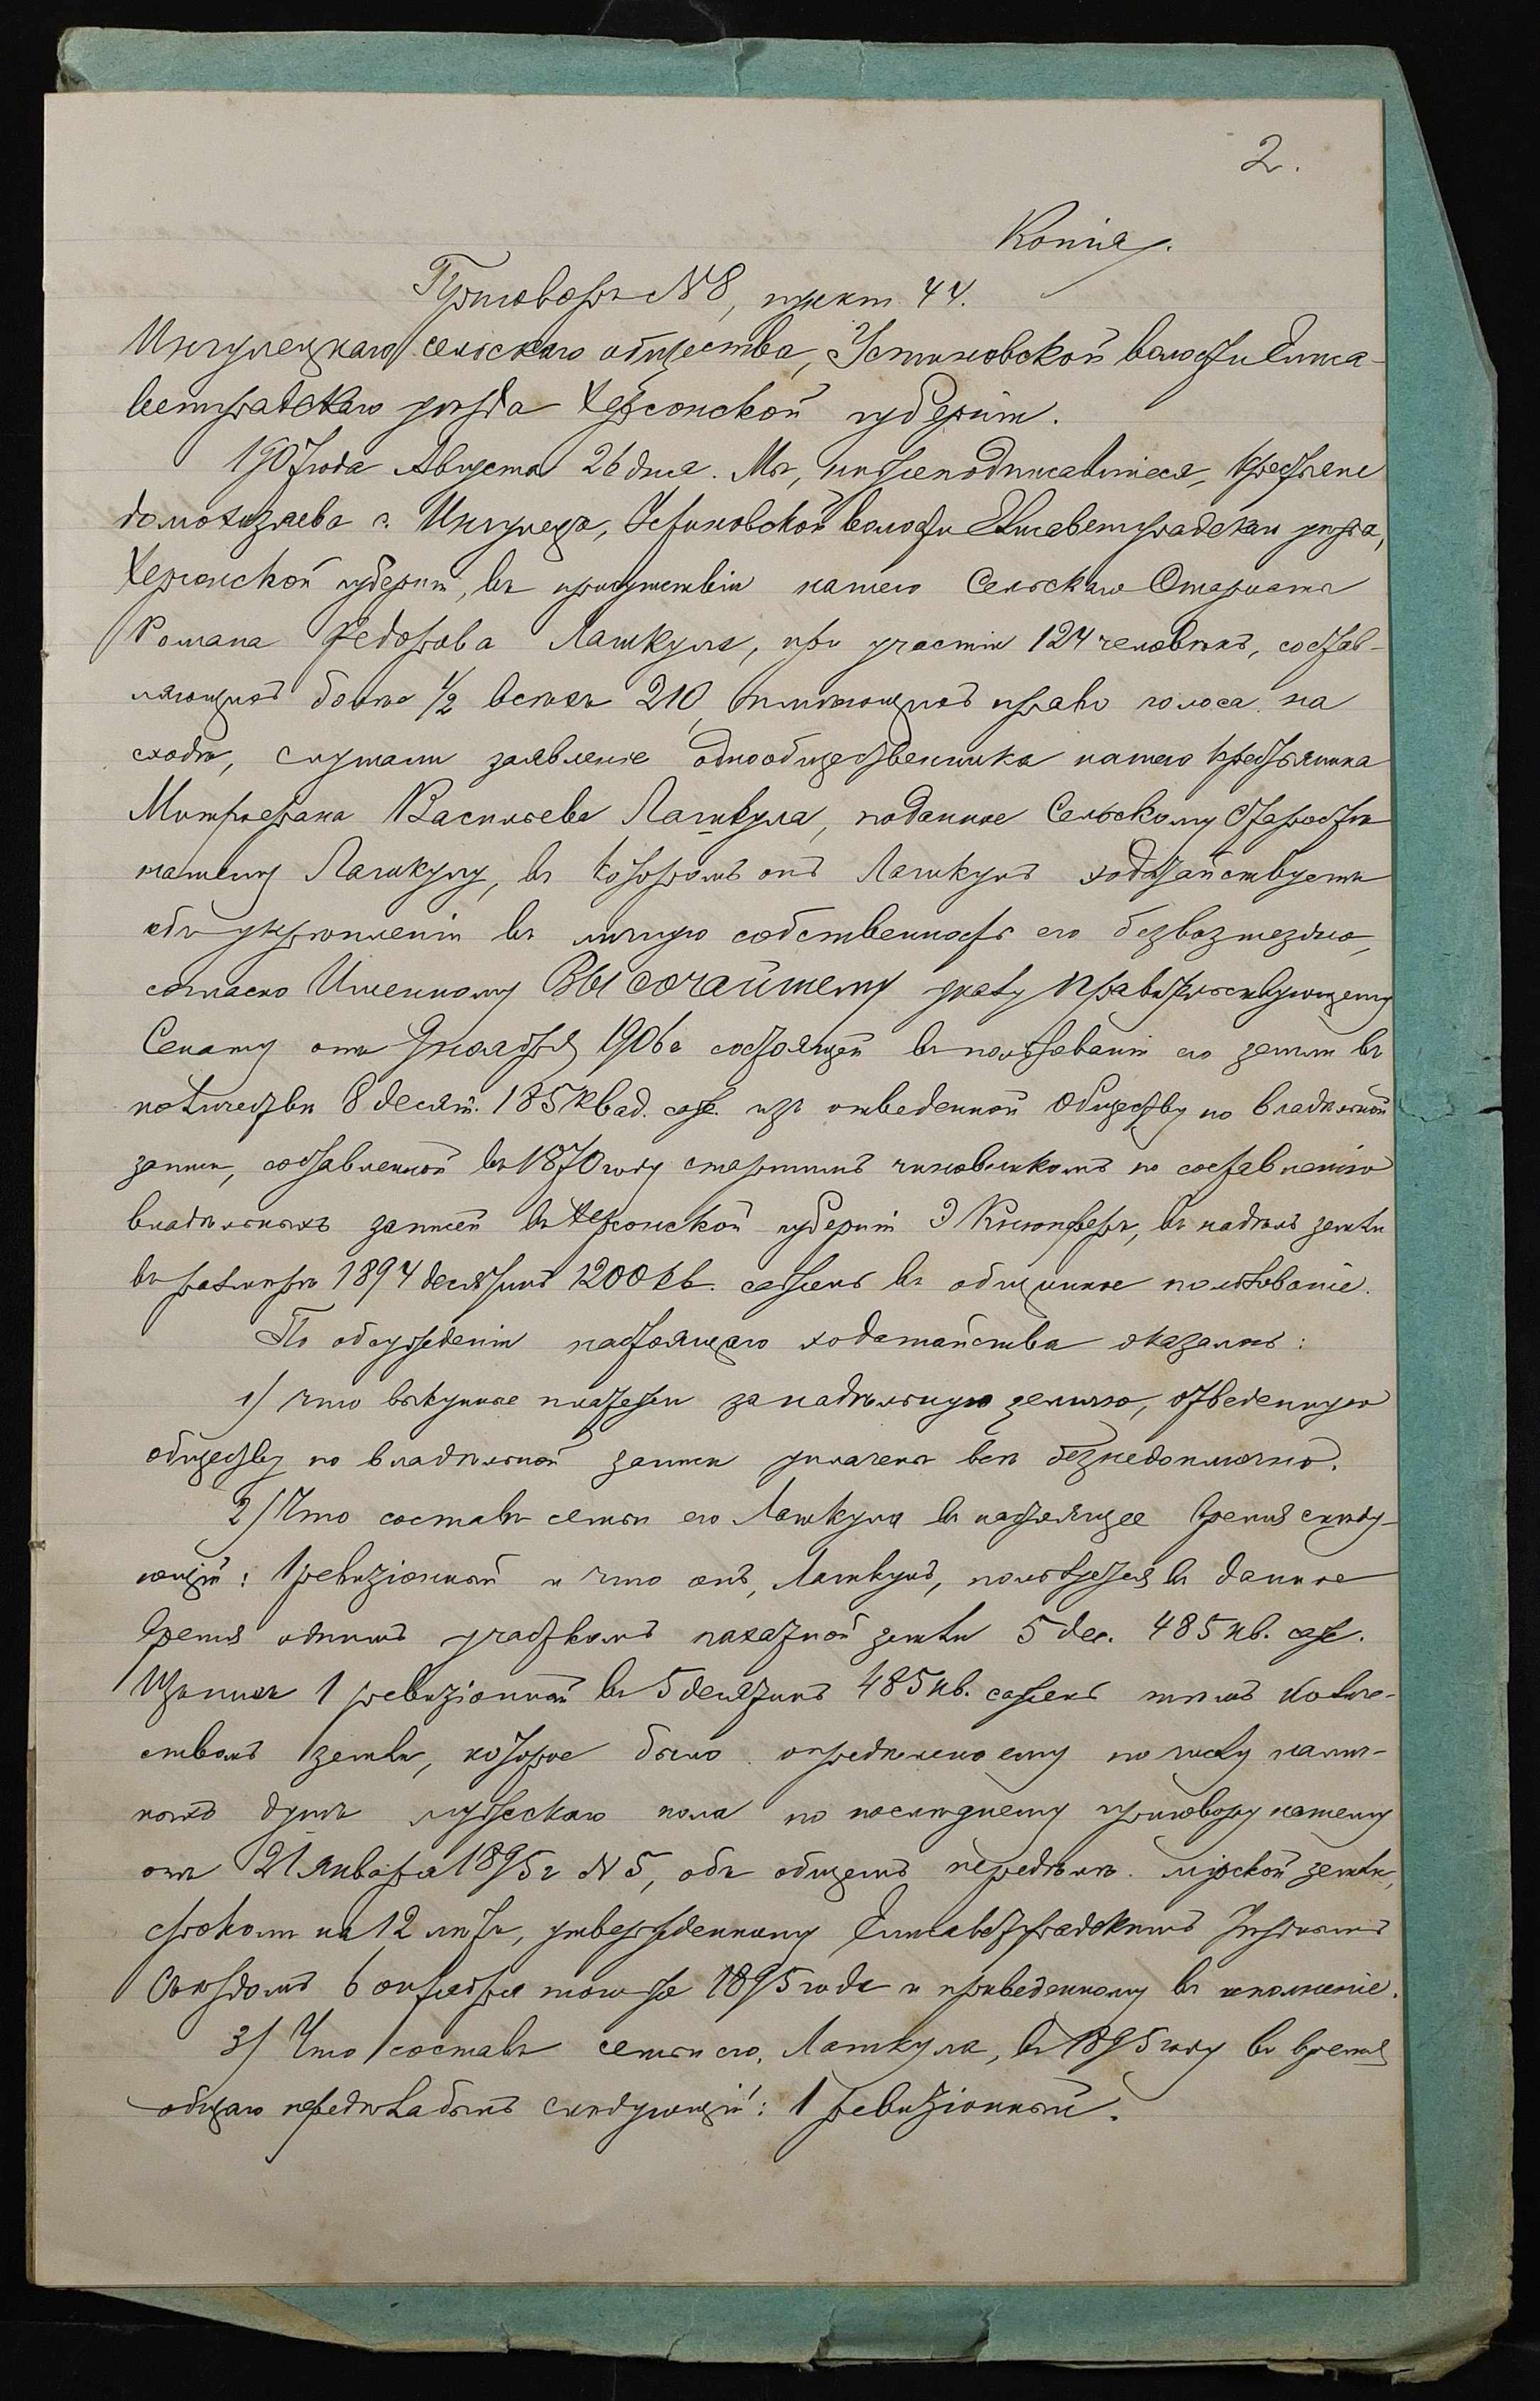 2.
Копія.
Приговоръ №8, пунктъ 44.
Ингулецкаго сельскаго общества, Устиновской волости Елиса-
ветградскаго уѣзда Херсонской губерніи.
1907 года Августа 26 дня. Мы, нижеподписавшіеся, крестьяне
домохозяева с. Ингульца, Устиновской волости Елисаветградскаго уѣзда,
Херсонской губерніи, въ присутствіи нашего Сельскаго Старосты
Романа Федорова Лашкула, при участіи 124 человѣкъ, состав-
ляющихъ болѣе 1/2 всѣхъ 210, имѣющихъ право голоса на
сходѣ, слушали заявленіе однообщественника нашего крестьянина
Митрофана Васильева Лашкула, поданное Сельскому Старостѣ
нашему Лашкулу, въ которомъ онъ Лашкулъ ходатайствуетъ
объ укрѣпленіи въ личную собственность его безвозмездно,
согласно Именному Высочайшему указу Правительствующему
Сенату отъ 9 ноября 1906 г состоящей въ пользованіи его земли въ
количествѣ 8 десят. 185 квад. саж. изъ отведенной обществу по владѣнной
записи, составленной въ 1870 году старшимъ чиновникомъ по составленію
владѣнныхъ записей въ Херсонской губерніи Э Кнюпферъ, въ надѣлъ земли
въ размѣрѣ 1894 десятинъ 1200 кв. сажень въ общинное пользованіе.
По обсужденіи настоящаго ходатайства оказалось:
1) что выкупные платежи за надѣльную землю, отведенную
обществу по владѣнной записи уплачены всѣ безнедоимочно.
2) Что составъ семьи его Лашкула въ настоящее время слѣду-
ющій: 1 ревизіонный и что онъ, Лашкулъ, пользуется въ данное
время однимъ участкомъ пахатной земли 5 дес. 485 кв. саж.
1 ревизіонный въ 5 десятинъ 485 кв. сажень тѣмъ количе-
ствомъ земли, которое было опредѣлено ему по числу налич-
ныхъ душъ мужескаго пола по послѣднему приговору нашему
отъ 21 Января 1895 г № 5, объ общемъ передѣлѣ мірской земли,
срокомъ на 12 лѣтъ, утвержденному Елисаветградскимъ Уѣзднымъ
Съѣздомъ 6 октября того же 1895 года и приведенному въ исполненіе.
3) Что составъ семьи его, Лашкула, въ 1895 году въ время
общаго передѣла былъ слѣдующій: 1 ревизіонный.